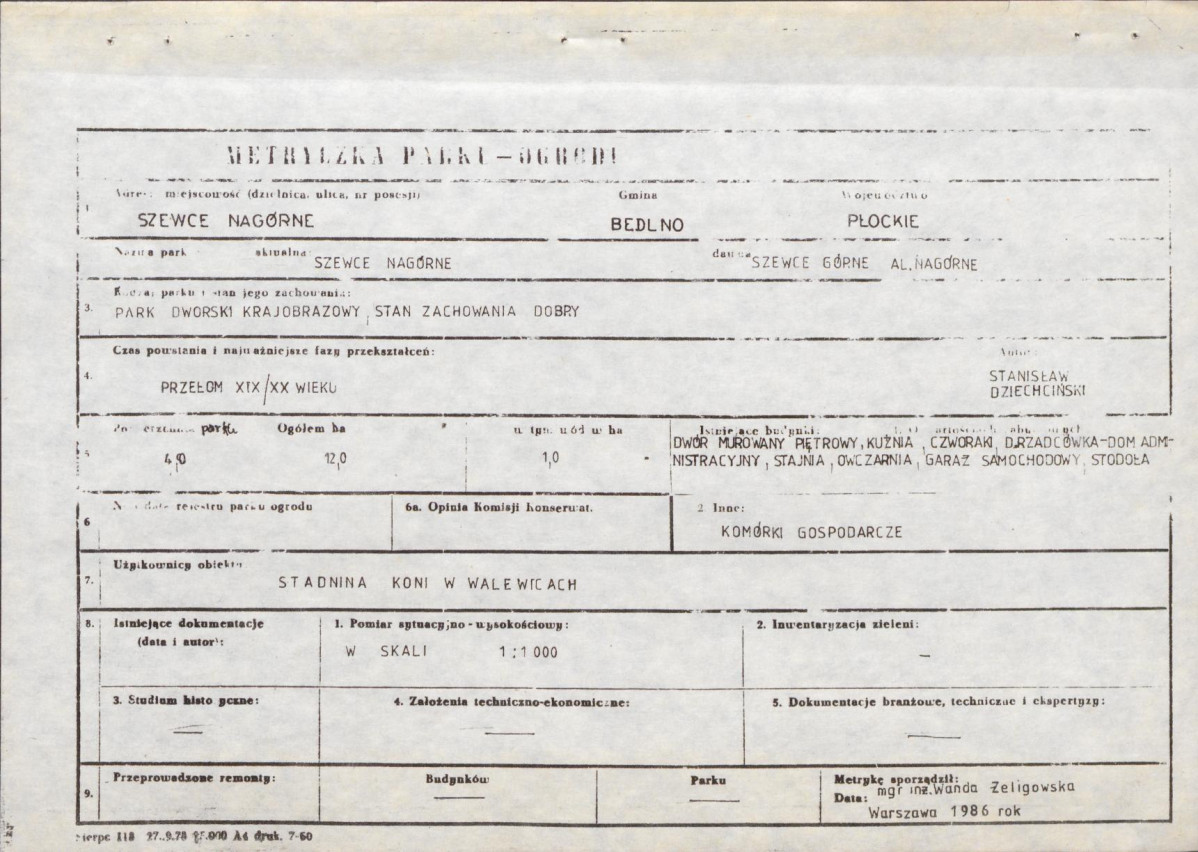 METRYCZKA PARKU – OGRODU
Adres: miejscowość (dzielnica, ulica, nr posesji) Gmina Województwo
1 SZEWCE NAGÓRNE BEDLNO PŁOCKIE
Nazwa park aktualna: SZEWCE NAGÓRNE dawna SZEWCE GÓRNE AL. NAGÓRNE
Rodzaj parku i stan jego zachowania:
3. PARK DWORSKI KRAJOBRAZOWY, STAN ZACHOWANIA DOBRY
Czas powstania i najważniejsze fazy przekształceń: Autor:
4. PRZEŁOM XIX/XX WIEKU STANISŁAW
DZIECHCIŃSKI
parku Ogółem ha wód w ha Istniejące budynki:
5 4,0 12,0 1,0
DWÓR MUROWANY PIĘTROWY, KUŹNIA, CZWORAKI, D.RZĄDCÓWKA-DOM ADM-
NISTRACYJNY, STAJNIA, OWCZARNIA, GARAŻ SAMOCHODOWY, STODOŁA
rejestru parku ogrodu 6a. Opinia Komisji Konserwat. 2 Inne:
6 KOMÓRKI GOSPODARCZE
Użytkownicy obiektu
7. STADNINA KONI W WALEWICACH
8. Istniejące dokumentacje (data i autor): 1. Pomiar sytuacyjno-wysokościowy: 2. Inwentaryzacja zieleni:
W SKALI 1:1000 –
3. Studium histo yczne: 4. Założenia techniczno-ekonomiczne: 5. Dokumentacje branżowe, techniczne i ekspertyzy:
— — —
9. Przeprowadzone remonty: Budynków Parku Metrykę sporządził:
— — Data: mgr inż. Wanda Żeligowska
Warszawa 1986 rok
ierpc 118 27.9.78 25.000 A4 druk. 7-60